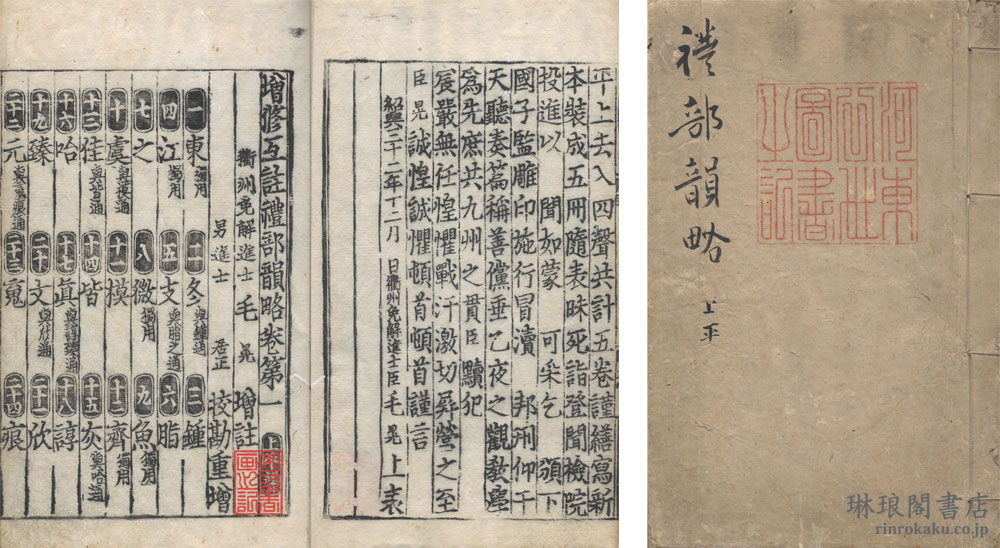 禮部韻略 上平
河東
圖書
平上去入四聲共計五卷謹繕寫新
本裝成五冊隨表昧死詣登聞檢院
投進以 聞如蒙 可采乞 頒下
國子監雕印施行冒瀆 邦刑仰干
天聽奏篇稱善儻垂乙夜之觀敎塾
為先庶共九州之貫臣 黷犯
宸嚴無任惶懼戰汗激切屏營之至
臣晃誠惶誠懼頓首頓首謹言
紹興三十二年十二月 日衢州免解進士臣毛晃上表
增修互註禮部韻略卷第一 上
衢州免解進士 毛晃 增註
男進士 居正 校勘重增
一東獨用 二冬與鍾通 三鍾
四江獨用 五支與脂之通 六脂
七之 八微獨用 九魚獨用
十虞與模通 十一模 十二齊獨用
十三佳與皆通 十四皆 十五灰與咍通
十六咍 十七眞與諄臻通 十八諄
十九臻 二十文與欣通 二十一欣
二十二元與䰟痕通 二十三䰟 二十四痕
琳琅閣書店
rinrokaku.co.jp